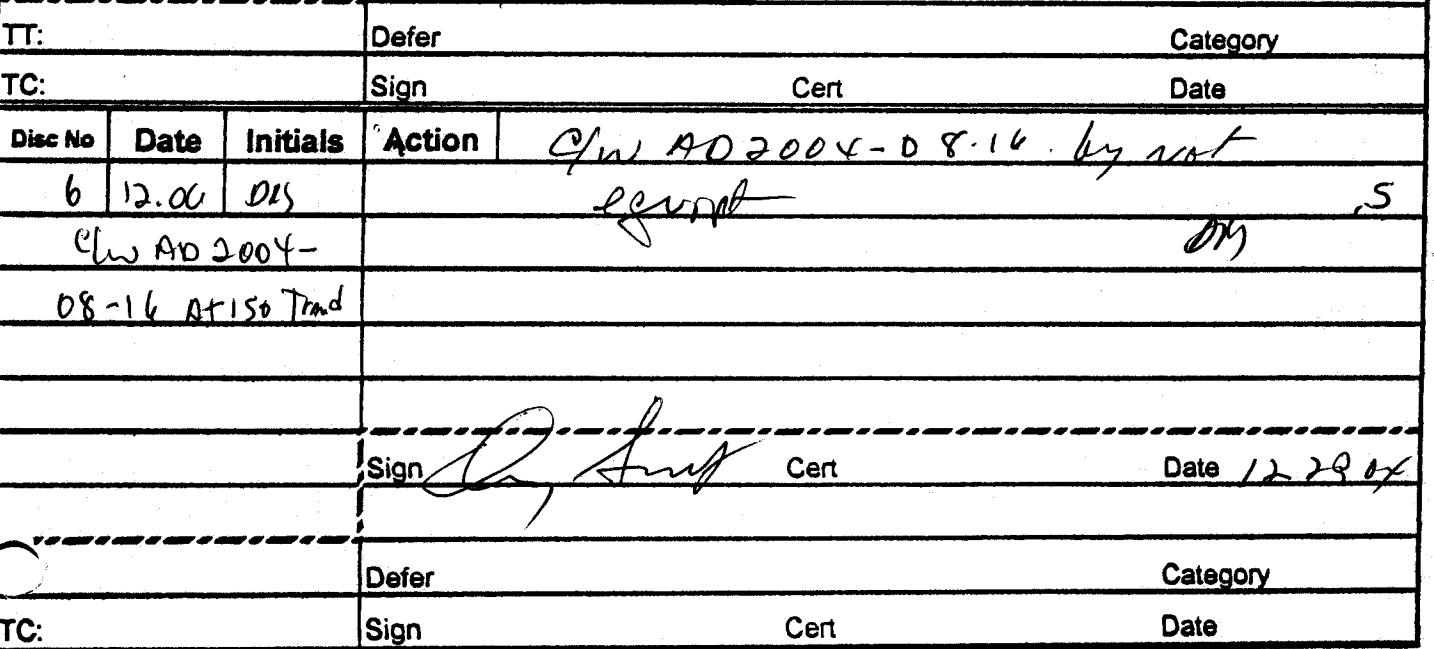 TT: Defer Category
TC: Sign Cert Date
Disc No Date Initials Action C/W AD 2004-08-16 by not
6 12.06 equipt .5
C/W AD 2004-
08-16 At 150
Sign Cert Date 12
Defer Category
TC: Sign Cert Date